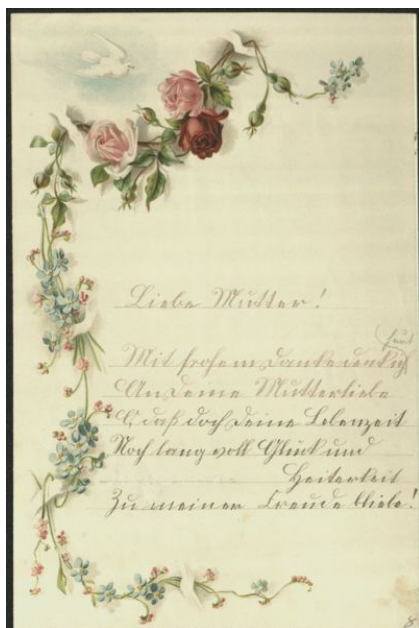 Liebe Mutter!
Mit frohem Danke denk ich heut
An Deine Mutterliebe
O, daß doch Deine Lebenzeit
Noch lang voll Glück und
Heiterkeit
Zu meiner Freude bliebe!